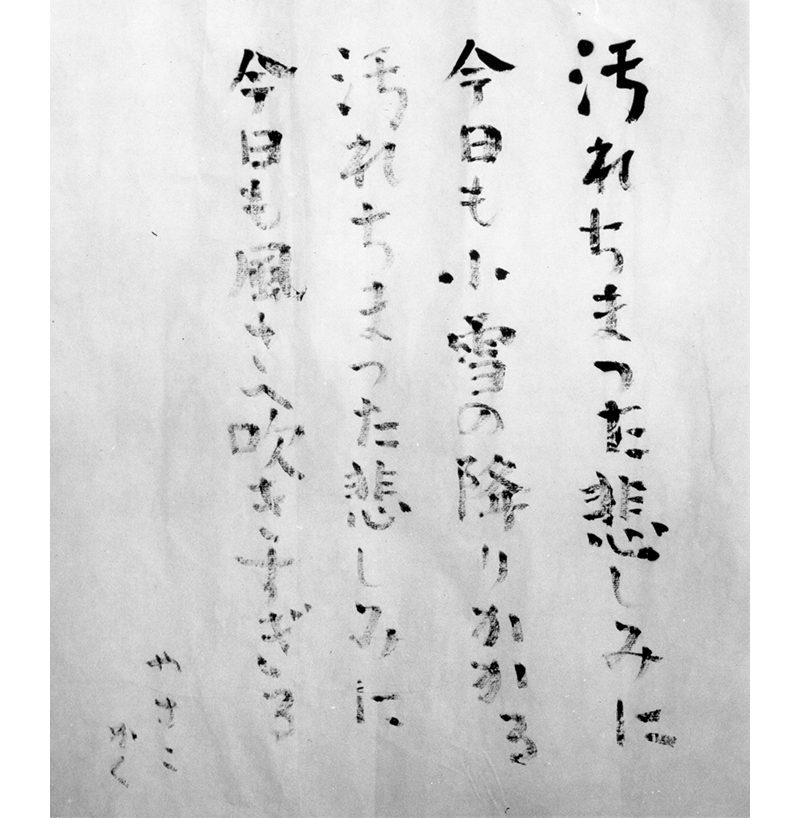 汚れちまつた悲しみに
今日も小雪の降りかかる
汚れちまつた悲しみに
今日も風さへ吹きすぎる
やすこ
かく